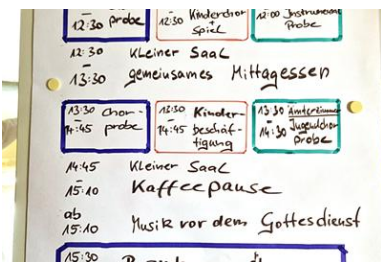 12:30 probe
12:30 Kinderchor
+
Spiel
12:00 Instrumente
Probe
12:30 Kleiner Saal
-
13:30 gemeinsames Mittagessen
13:30 Chor-
14:45 probe
13:30 Kinder-
14:45 beschäf-
tigung
13:30 Amtszimmer
14:30 Jugendchor
Probe
14:45 Kleiner Saal
-
15:10 Kaffeepause
ab
15:10 Musik vor dem Gottesdienst
15:30